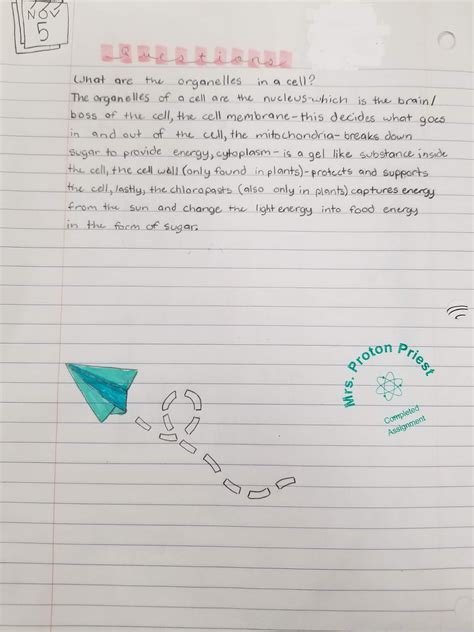 NOV
5
Questions
What are the organelles in a cell?
The organelles of a cell are the nucleus-which is the brain/
boss of the cell, the cell membrane-this decides what goes
in and out of the cell, the mitochondria-breaks down
sugar to provide energy, cytoplasm-is a gel like substance inside
the cell, the cell wall (only found in plants)-protects and supports
the cell, lastly, the chloropasts (also only in plants) captures energy
from the sun and change the light energy into food energy
in the form of sugar.
Mrs. Proton Priest
Completed
Assignment